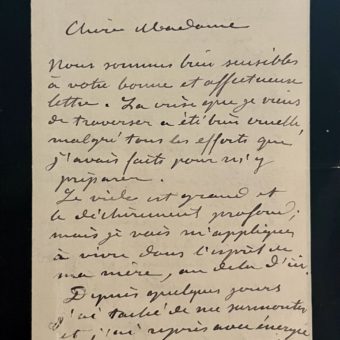 Chère Madame
Nous sommes bien sensibles
à votre bonne et affectueuse
lettre. La crise que je viens
de traverser a été bien cruelle,
malgré tous les efforts que
j'avais faits pour m'y
préparer.
Le vide est grand et
le déchirement profond;
mais je vais m'appliquer
à vivre dans l'esprit de
ma mère, au delà d'ici.
Depuis quelques jours
j'ai taché de me surmonter
et j'ai repris avec énergie